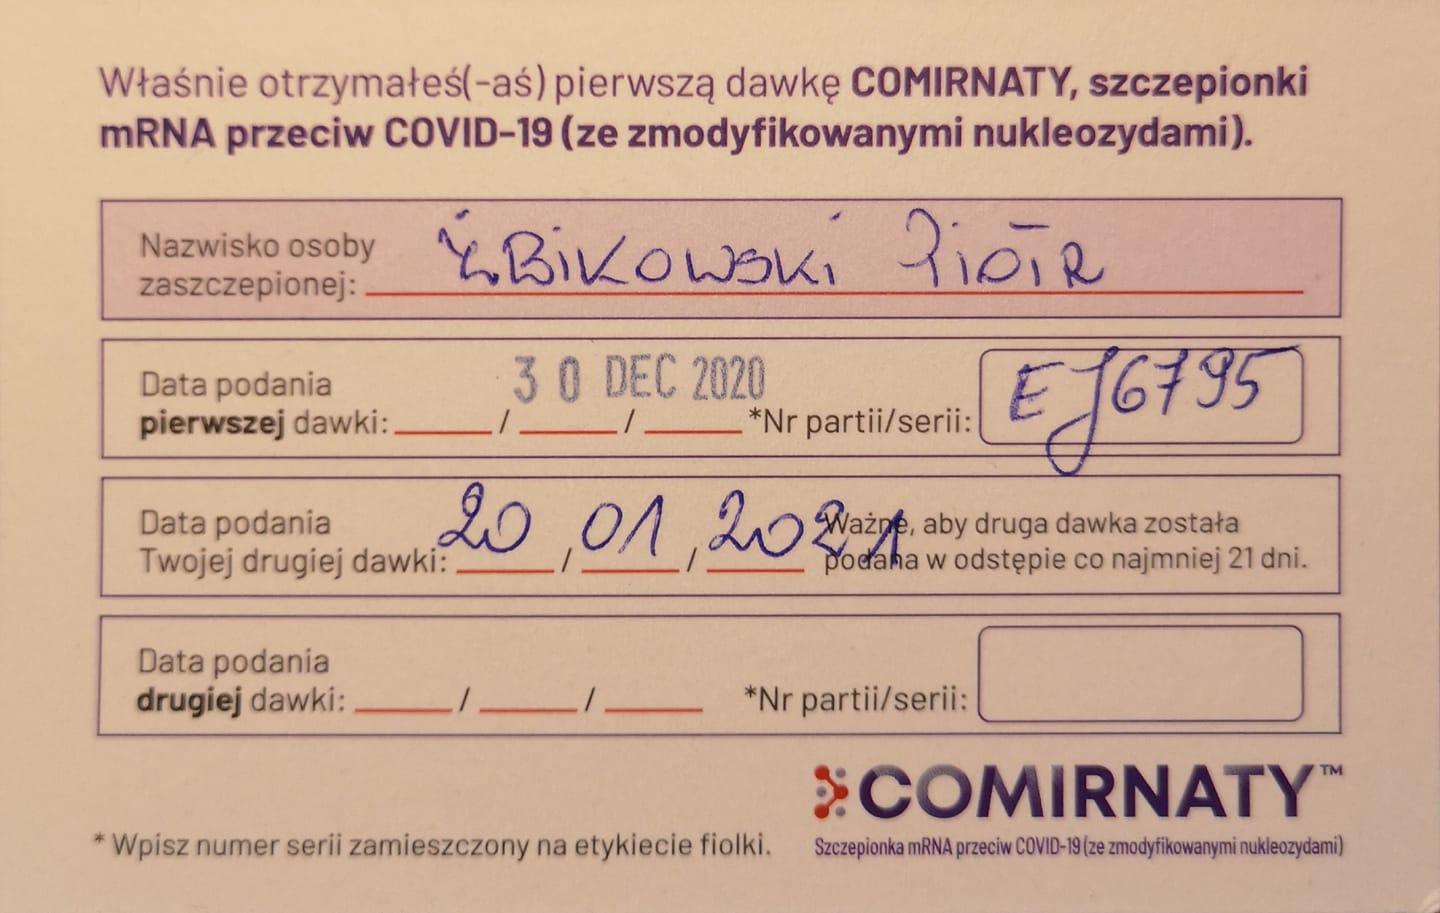 Właśnie otrzymałeś(-aś) pierwszą dawkę COMIRNATY, szczepionki
mRNA przeciw COVID-19 (ze zmodyfikowanymi nukleozydami).
Nazwisko osoby
zaszczepionej: ŻBIKOWSKI PIOTR
30 DEC 2020
Data podania
pierwszej dawki: / / *Nr partii/serii: EJ6795
Data podania
Twojej drugiej dawki: 20 / 01 / 2021
Ważne, aby druga dawka została
podana w odstępie co najmniej 21 dni.
Data podania
drugiej dawki: / / *Nr partii/serii:
COMIRNATY™
* Wpisz numer serii zamieszczony na etykiecie fiolki.
Szczepionka mRNA przeciw COVID-19 (ze zmodyfikowanymi nukleozydami)